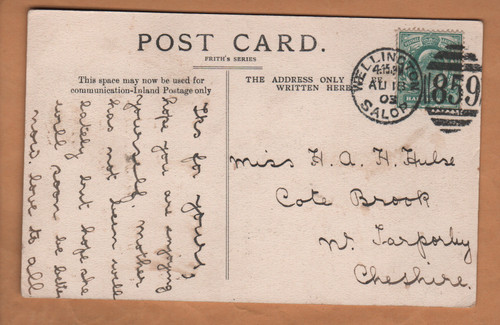 POST CARD.
FRITH'S SERIES
This space may now be used for
communication-Inland Postage only
THE ADDRESS ONLY
WRITTEN HERE
WELLINGTON
4.15 PM
AU 18
03
SALOP
859
HAL
Txs for yours,
hope you are enjoying
yourself. Mother
has not been well
lately but hope she
will soon be better
now. love to all
Miss H. A. H. Hulse
Cote Brook
Nr. Tarporley
Cheshire.